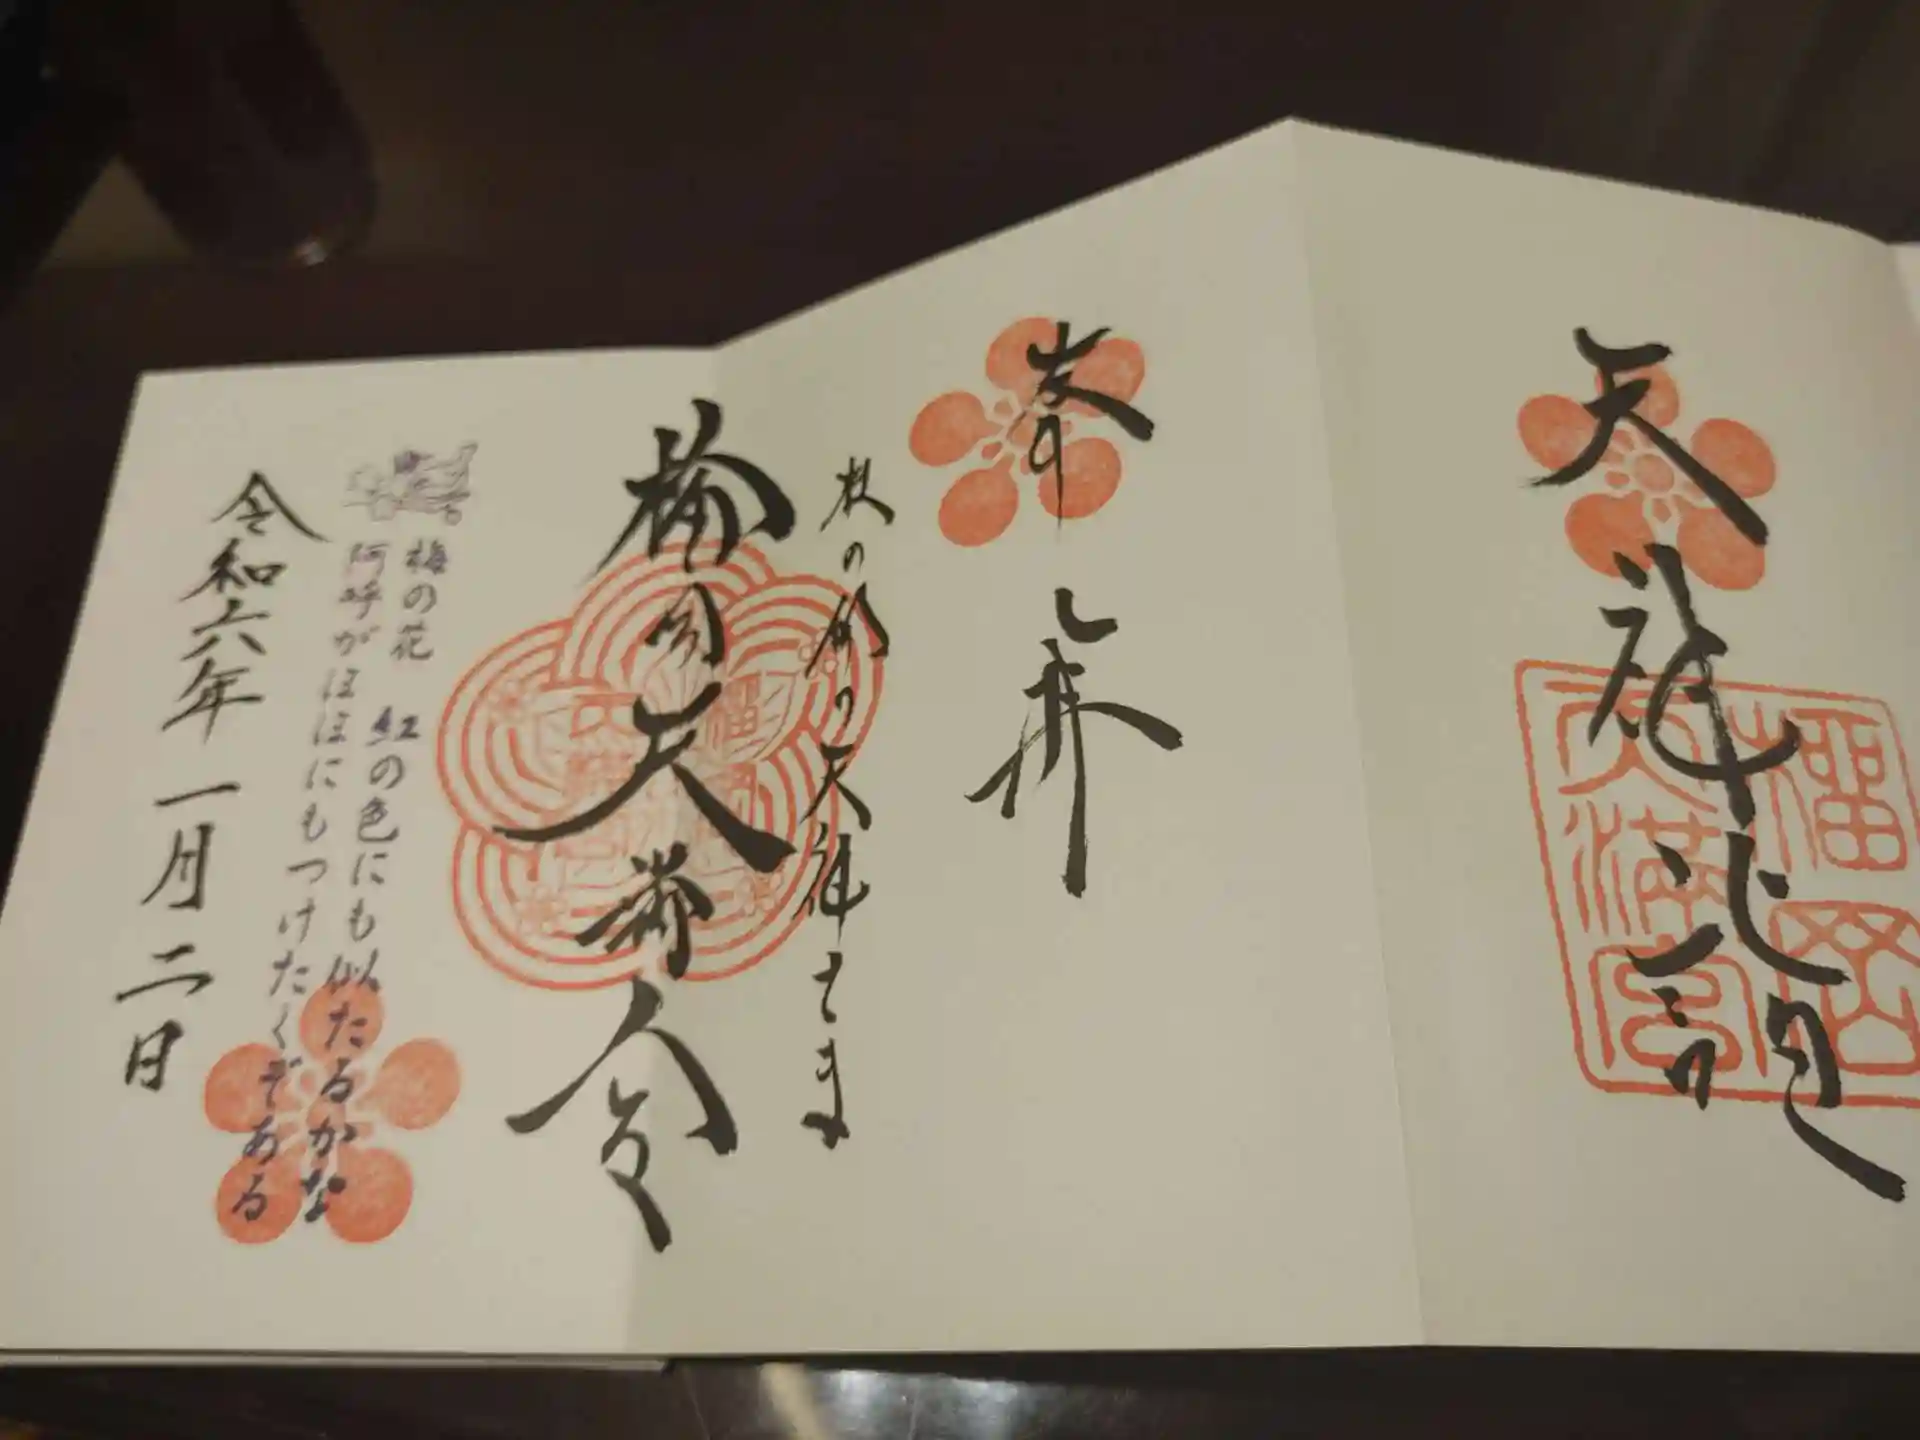 天神詣
榴岡天満宮
奉拝
杜の都の天神さま
榴岡天満宮
梅の花　紅の色にも似たるかな
阿呼がほほにもつけたくぞある
令和六年一月二日